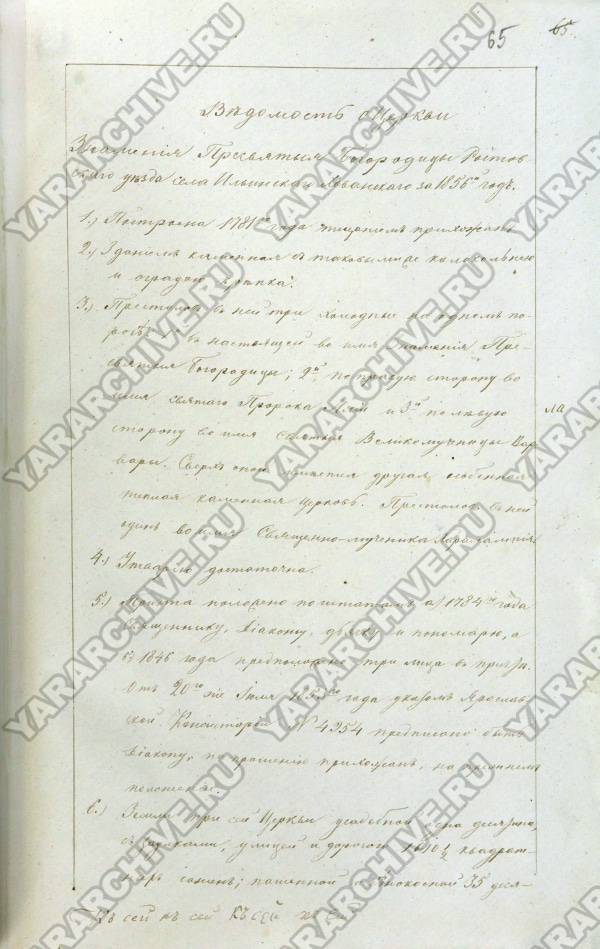 65 65
Вѣдомость о Церкви
Знаменія Пресвятыя Богородицы Ростов-
скаго уѣзда села Ильинскаго за 1856й годъ.
1.) Построена 1781го года тщаніемъ прихожанъ
2.) Зданіемъ каменная съ таковыми же колокольнею
и оградою крѣпка.
3.) Престоловъ въ ней три холодные на одномъ по-
1й въ настоящей во имя Знаменія Пре-
святыя Богородицы; 2й по правую сторону во
имя святаго Пророка Иліи и 3й по лѣвую
ла
сторону во имя святыя Великомученицы Вар-
вары. Сверхъ оной имѣется другая особенная
теплая каменная Церковь. Престолъ въ ней
одинъ во имя Священно-мученика Харалампія
4.) Утварію достаточна.
5.) Причта положено по штатамъ 1784го года
Священнику, діакону, дьячку и пономарю, а
въ 1846 года предположено три лица
Отъ 20го Іюля года указомъ Ярослав-
ской Консисторіи № 4254 предписано быть
діакону, по прошенію прихожанъ, на прежнемъ
положеніи.
6.) Земли при сей Церкви усадебной одна десятина,
улицей и дорогою 1610 1/2 квадрат-
ныхъ саженъ; пашенной и сѣнокосной 35 деся-
YARARCHIVE.RU